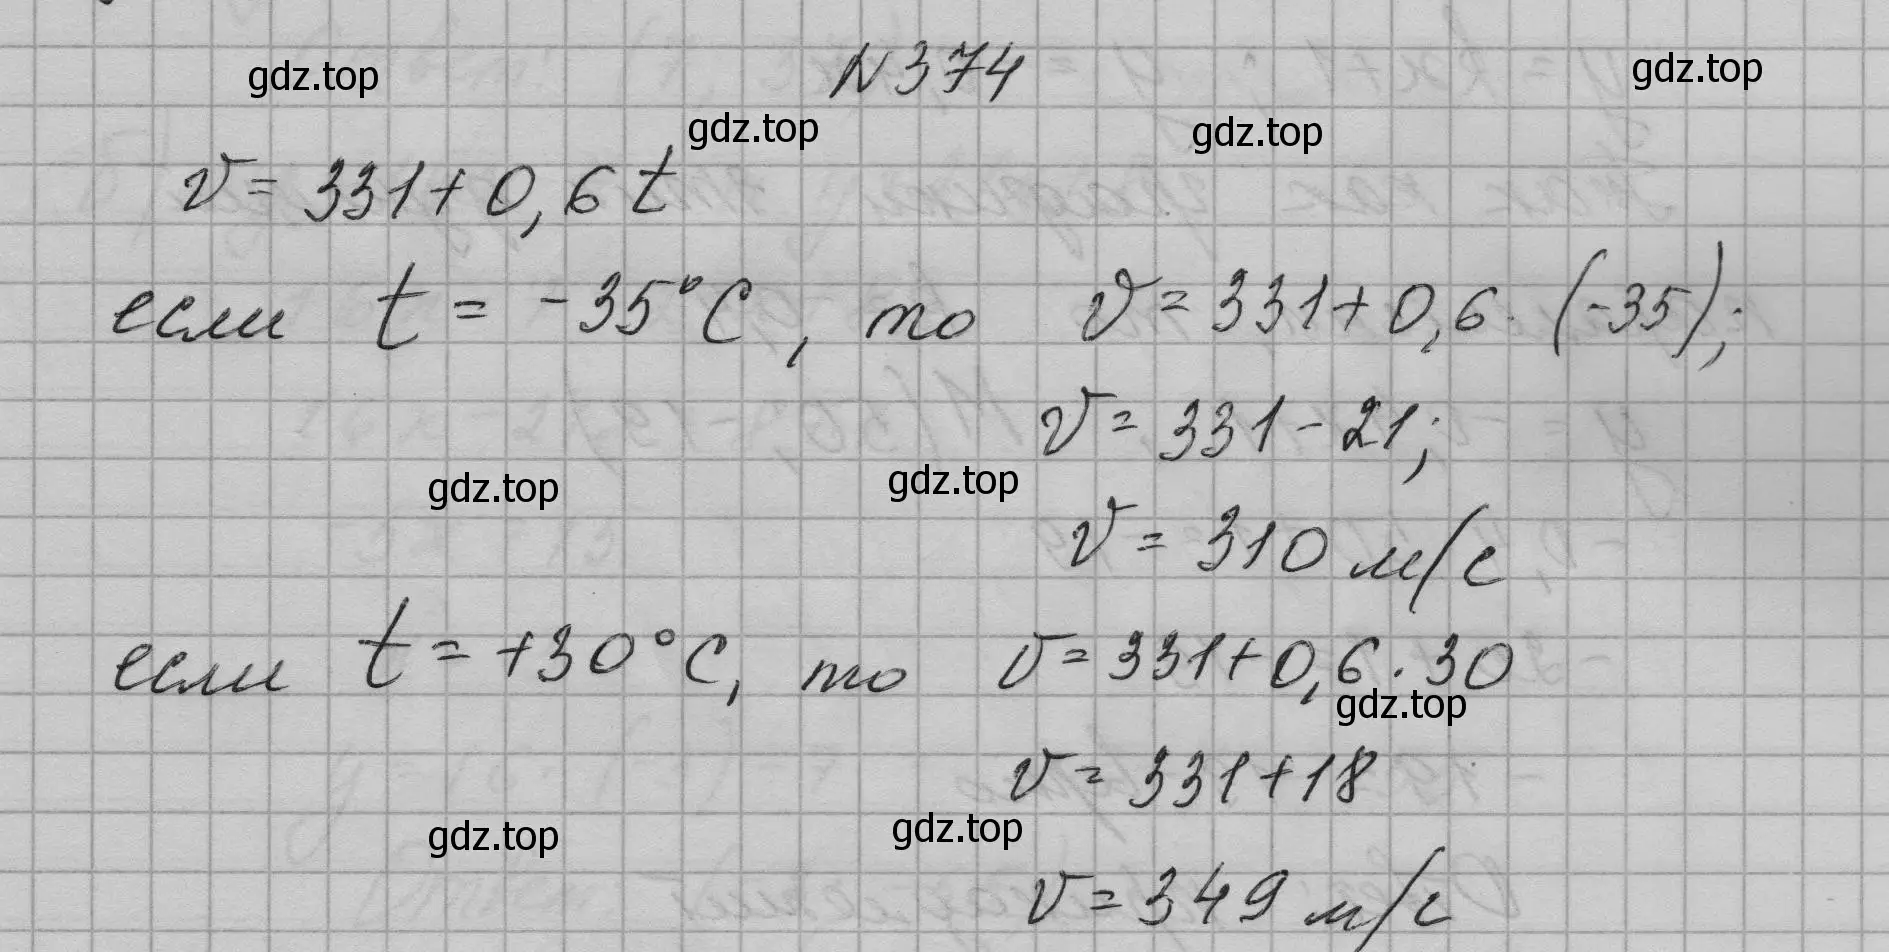 gdz.top
N 374
gdz.top
gdz.top
gdz.top
v = 331 + 0,6 t
если t = -35°C, то v = 331 + 0,6 · (-35);
v = 331 - 21;
gdz.top
gdz.top
v = 310 м/с
если t = +30°C, то v = 331 + 0,6 · 30
gdz.top
v = 331 + 18
gdz.top
gdz.top
v = 349 м/с